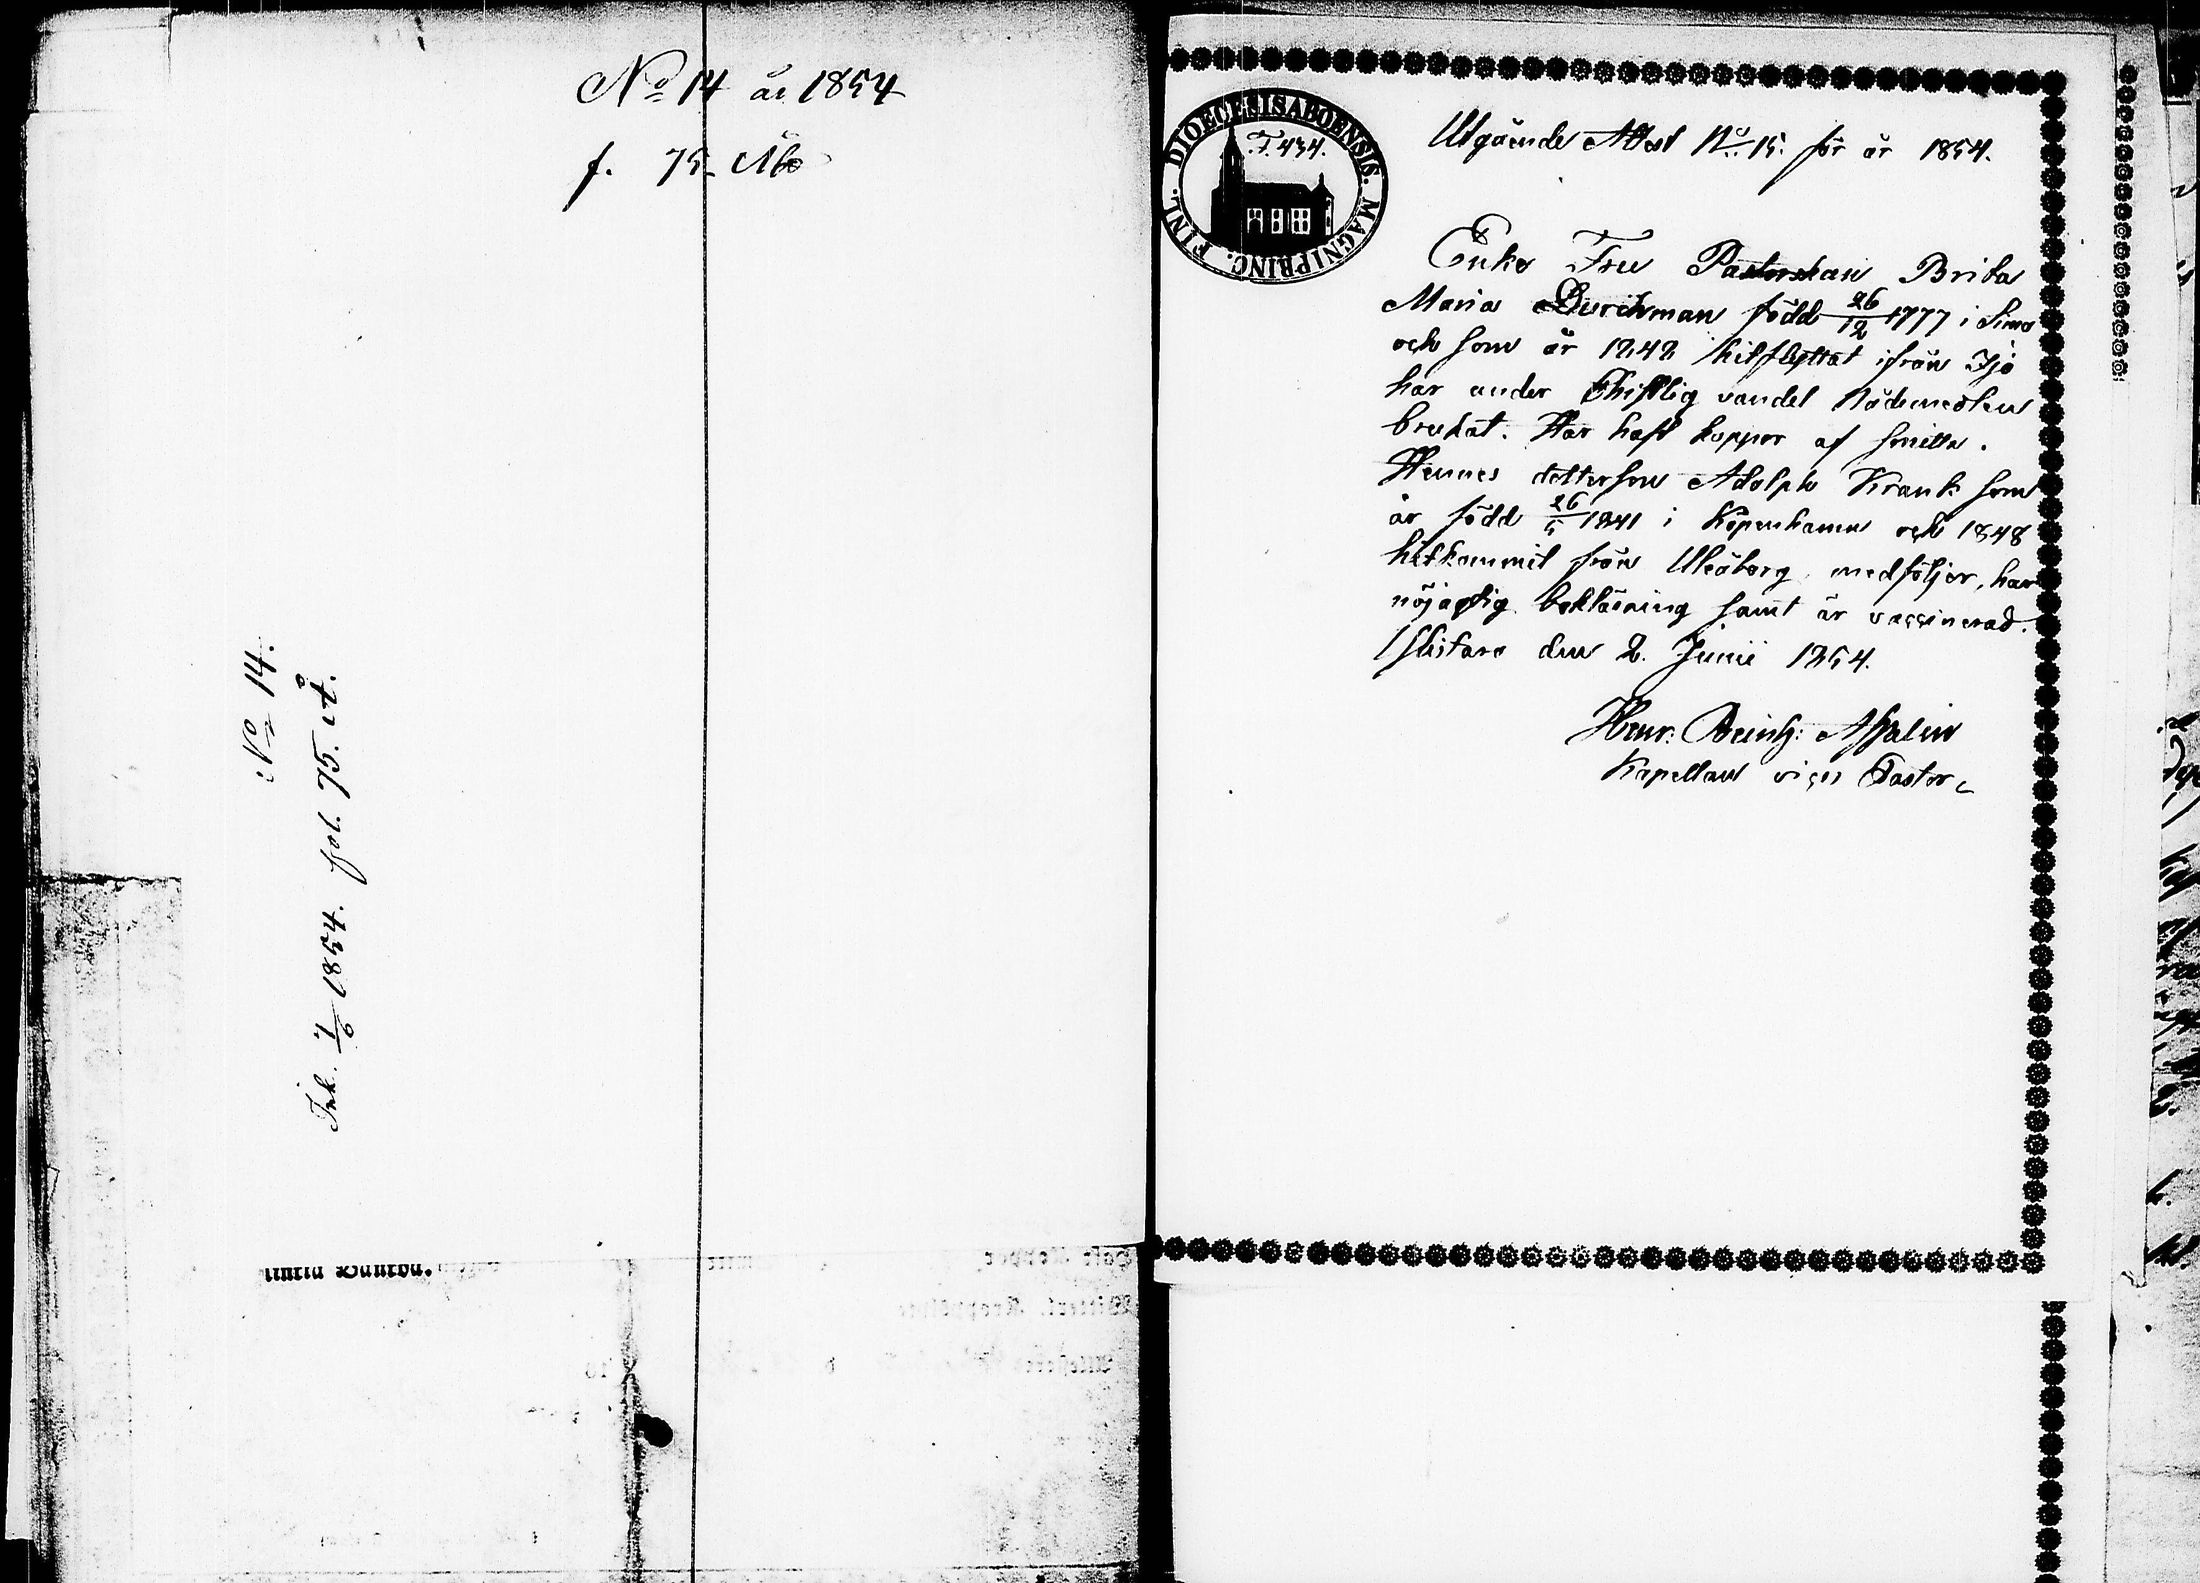 No 14 år 1854
f. 75 Åbo
No 14.
Ink. 7/6 1854. fol. 75. Å.
DIOECESIS ABOENSIS. MAGNI PRINC. FINL.
F. 434.
Utgående Attest No 15. för år 1854.
Enke Fru Pastorskan Brita
Maria Durchman född 26/12 1777 i Simo
och som år 1848 hitflyttat ifrån Ijo
har under Christlig vandel Nådemedlen
brukat. Har haft koppor af smitta.
Hennes dotterson Adolph Krank som
är född 26/5 1841 i Köpenhamn och 1848
hitkommit från Uleåborg medföljer, har
nöjagtig bokläsning samt är vaccinerad.
Ilfistaro den 2. Junii 1854.
Henr: Reinh:
Kapellan vices Pastor